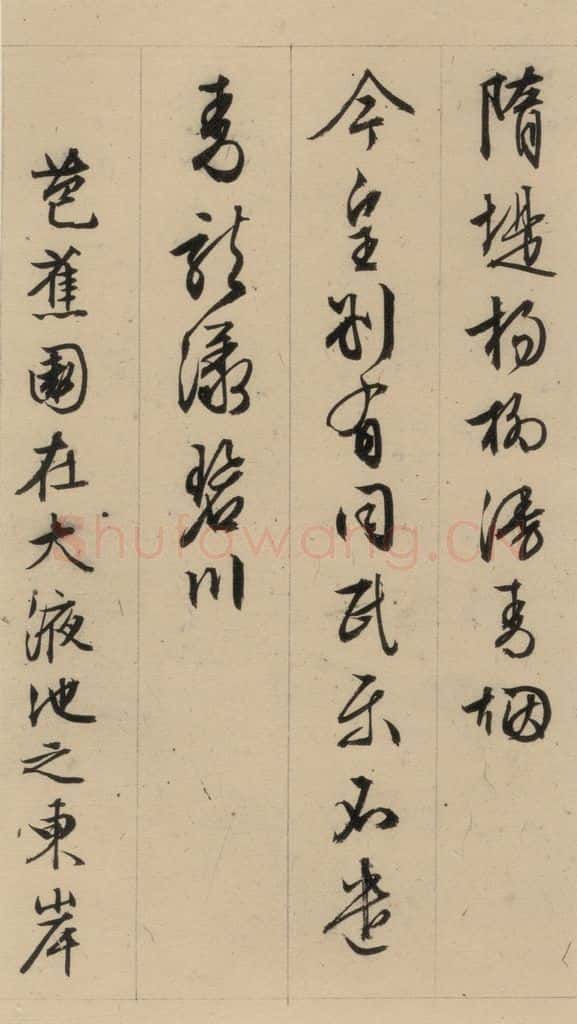 隋堤楊柳漫青烟
今皇別有同民樂不遣
青龍漾碧川
芭蕉園在太液池之東岸
Shufawang.CN